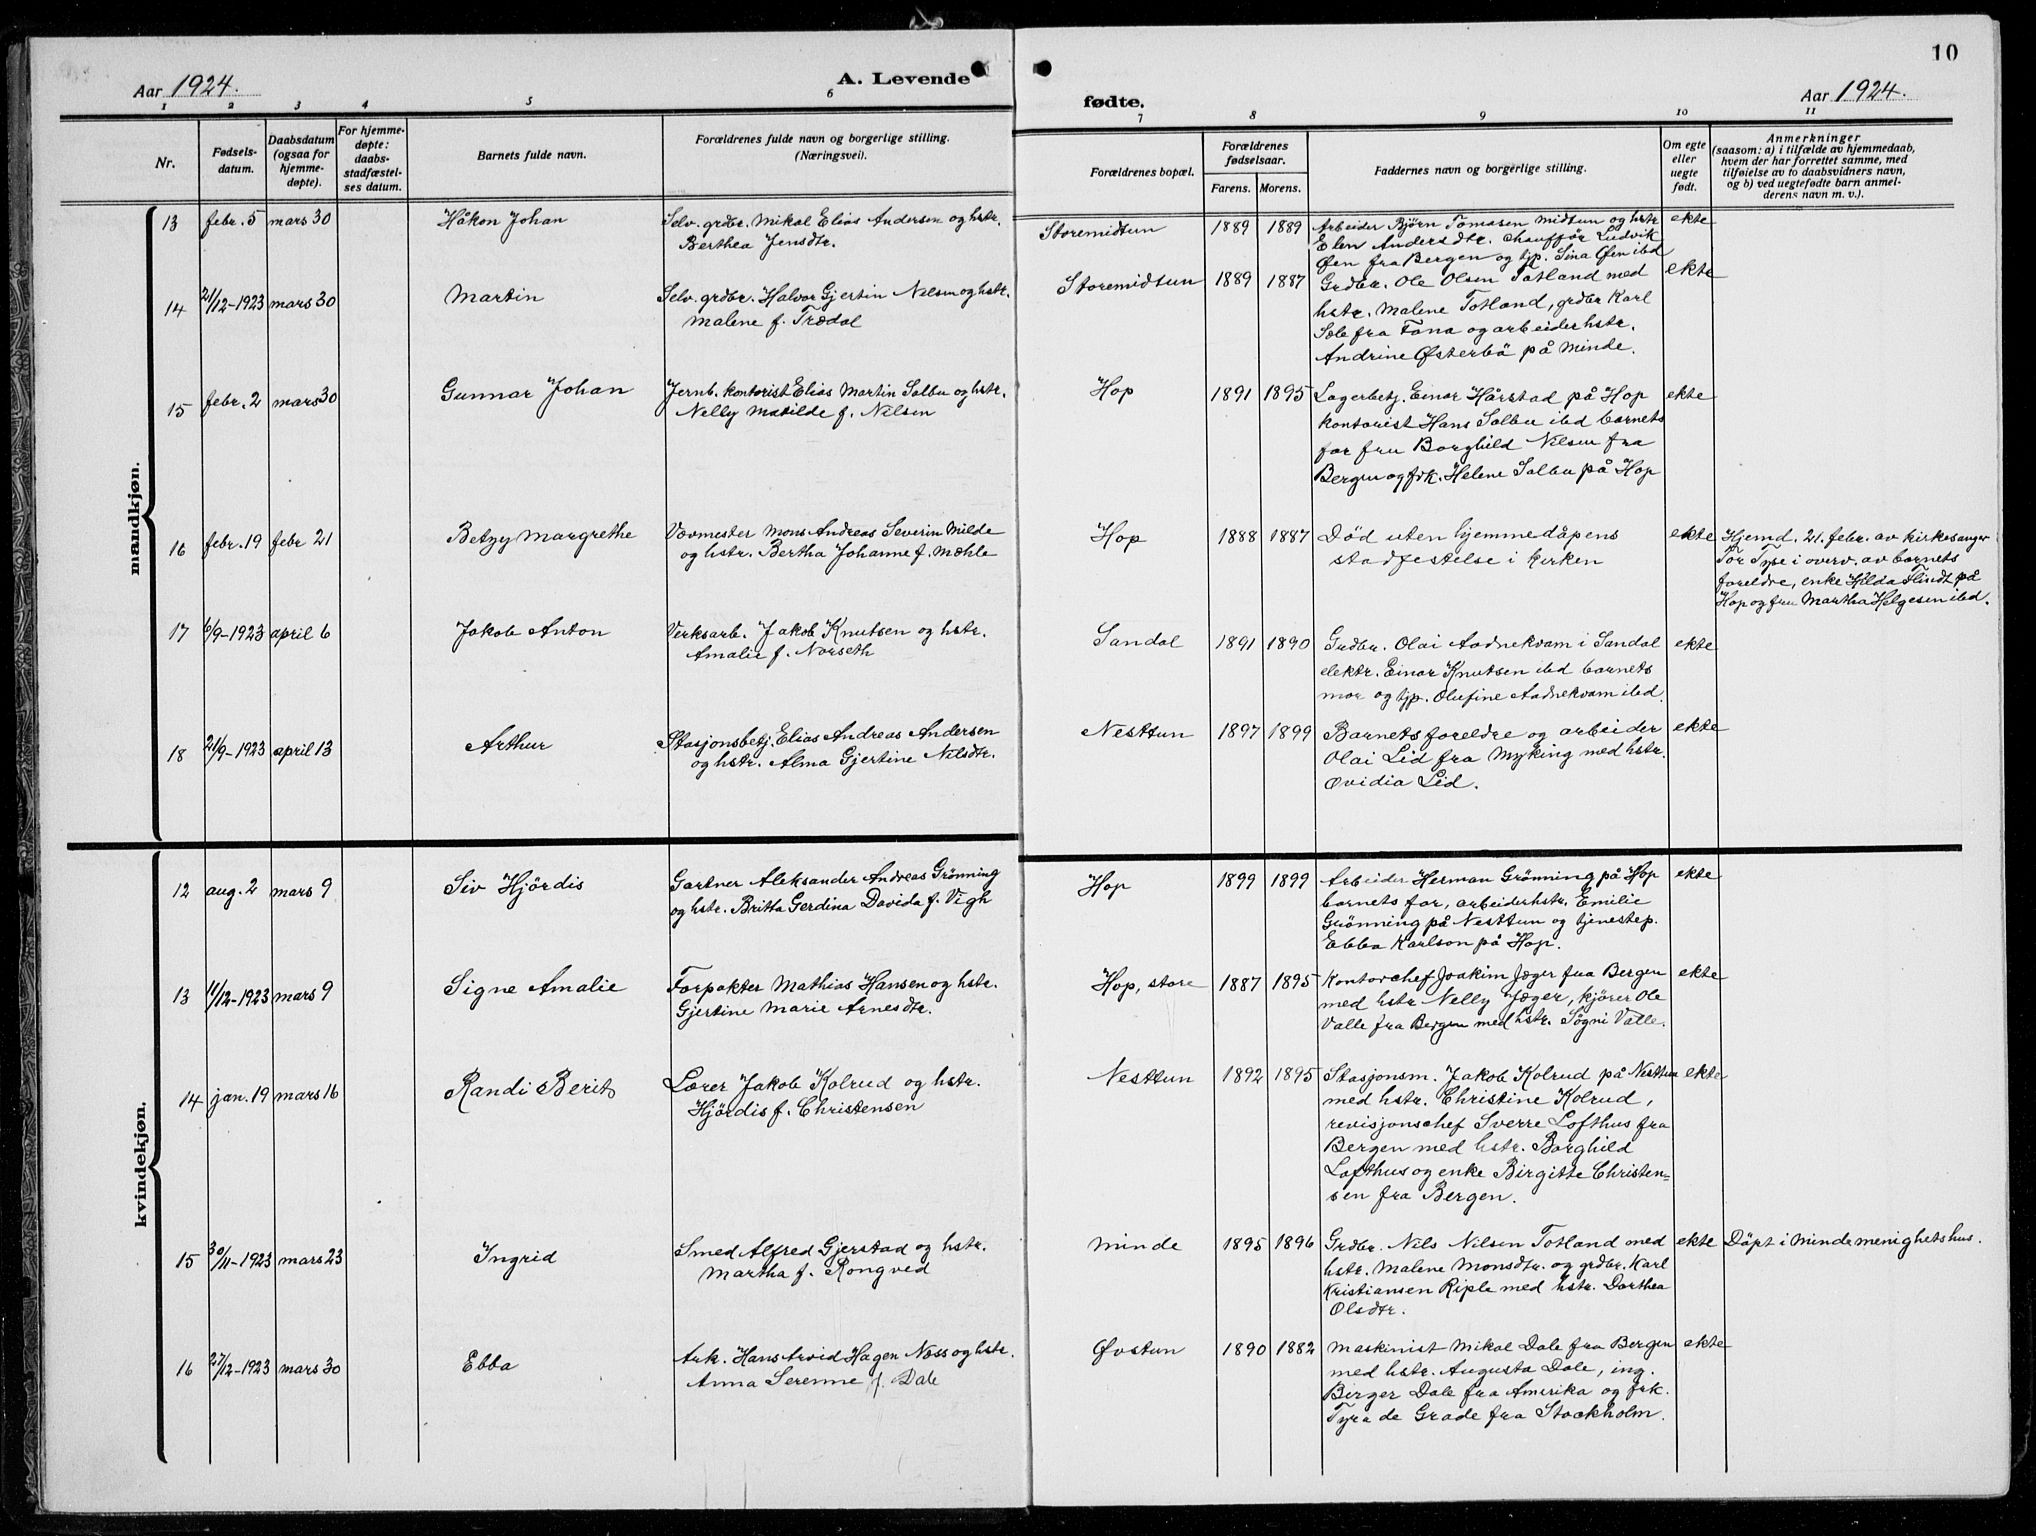 10
Aar 1924.
A. Levende
fødte.
Aar 1924.
1 2 3 4 5 6 7 8 9 10 11
Nr.
Fødsels-
datum.
Daabsdatum
(ogsaa for
hjemme-
døpte).
For hjemme-
døpte:
daabs-
stadfæstel-
ses datum.
Barnets fulde navn.
Forældrenes fulde navn og borgerlige stilling.
(Næringsvei).
Forældrenes bopæl.
Forældrenes
fødselsaar.
Farens. Morens.
Faddernes navn og borgerlige stilling.
Om egte
eller
uegte
født.
Anmerkninger
(saasom: a) i tilfælde av hjemmedaab,
hvem der har forrettet samme, med
tilføielse av to daabsvidners navn,
og b) ved uegtefødte barn anmel-
derens navn m. v.).
mandkjøn.
13 febr. 5 mars 30 Håkon Johan
Selv. grdbr. Mikal Elias Andersen og hstr.
Berthea Jensdtr.
Storemidtun 1889 1889
Arbeider Bjørn Tomasen Midtun og hstr
Elen Andersdtr. chauffør Ludvik
Øen fra Bergen og tjp. Sina Øen ibd
ekte
14 21/12-1923 mars 30 Martin
Selv. grdbr. Halvor Gjertin Nilsen og hstr.
Malene f. Trædal
Storemidtun 1889 1887
Grdbr. Ole Olsen Totland med
hstr. Malene Totland, grdbr Karl
Sæle fra Fana og arbeiderhstr.
Andrine Østerbö på Minde.
ekte
15 febr. 2 mars 30 Gunnar Johan
Jernb. kontorist Elias Martin Salbu og hstr.
Nelly Matilde f. Nilsen
Hop 1891 1895
Lagerbetj. Einar Hårstad på Hop
kontorist Hans Salbu ibd barnets
far fru Borghild Nilsen fra
Bergen og frk. Helene Salbu på Hop
ekte
16 febr. 19 febr 21 Betzy Margrethe
Vævmester Mons Andreas Severin Milde
og hstr. Bertha Johanne f. Mæhle
Hop 1888 1887
Död uten hjemmedåpens
stadfestelse i kirken
ekte
Hjemd. 21. febr. av kirkesanger
Tor Tyse i overv. av barnets
foreldre, enke Hilda Flindt på
Hop og fru Martha Helgesen ibd.
17 6/9-1923 april 6 Jakob Anton
Verksarb. Jakob Knutsen og hstr.
Amalie f. Norseth
Sandal 1891 1890
Grdbr. Olai Aadnekvam i Sandal
elektr. Einar Knutsen ibd barnets
mor og tjp. Olufine Aadnekvam ibd.
ekte
18 21/9-1923 april 13 Arthur
Stasjonsbetj. Elias Andreas Andersen
og hstr. Alma Gjertine Nilsdtr.
Nesttun 1897 1899
Barnets foreldre og arbeider
Olai Lid fra Myking med hstr.
Ovidia Lid.
ekte
kvindekjøn.
12 aug. 2 mars 9 Siv Hjördis
Gartner Aleksander Andreas Grönning
og hstr. Britta Gerdina Davida f. Vigh
Hop 1899 1899
Arbeider Herman Grönning på Hop
barnets far, arbeiderhstr. Emilie
Grönning på Nesttun og tjenestep.
Ebba Karlson på Hop.
ekte
13 11/12-1923 mars 9 Signe Amalie
Forpakter Mathias Hansen og hstr.
Gjertine Marie Arnesdtr.
Hop, store 1887 1895
Kontorchef Joakim Jæger fra Bergen
med hstr Nelly Jæger, kjörer Ole
Valle fra Bergen med hstr. Sögni Valle.
ekte
14 jan. 19 mars 16 Randi Berit
Lærer Jakob Kolrud og hstr.
Hjördis f. Christensen
Nesttun 1892 1895
Stasjonsm. Jakob Kolrud på Nesttun
med hstr. Christine Kolrud,
revisjonschef Sverre Lofthus fra
Bergen med hstr. Borghild
Lofthus og enke Birgitte Christen=
sen fra Bergen.
ekte
15 30/11-1923 mars 23 Ingrid
Smed Alfred Gjerstad og hstr.
Martha f. Rongved
Minde 1895 1896
Grdbr. Nils Nilsen Totland med
hstr. Malene Monsdtr. og grdbr. Karl
Kristiansen Riple med hstr. Dorthea
Olsdtr.
ekte
Döpt i Minde menighetshus.
16 27/12-1923 mars 30 Ebba
Ark. Hans Arvid Hagen Næss og hstr.
Anna Serenne f. Dale
Øvstun 1890 1882
Maskinist Mikal Dale fra Bergen
med hstr. Augusta Dale, ing.
Birger Dale fra Amerika og frk.
Tyra de Grade fra Stockholm.
ekte